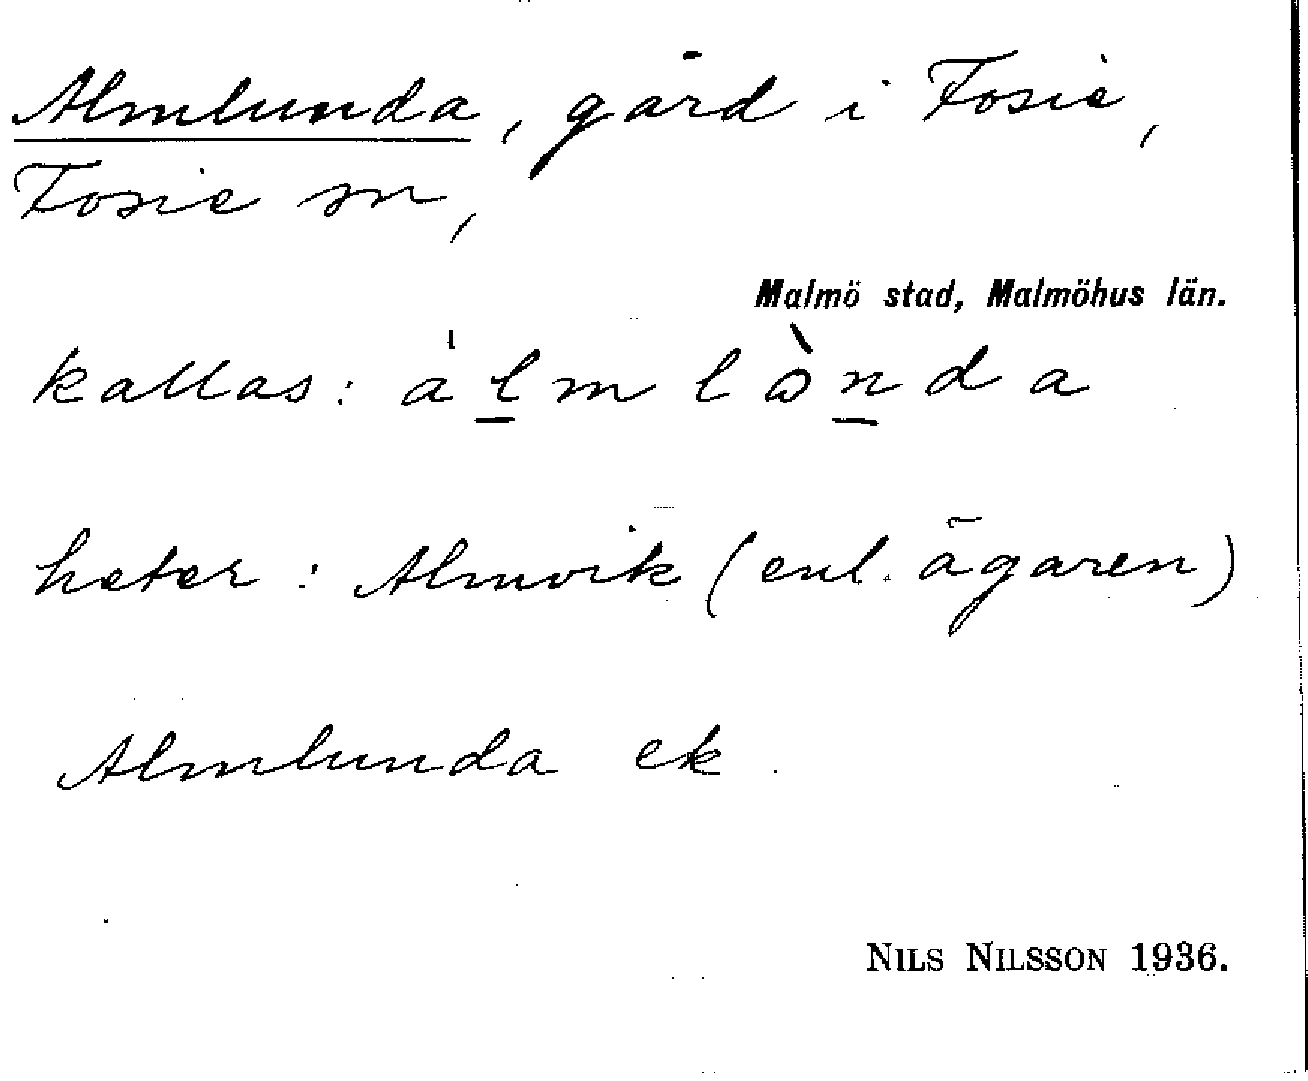 Almlunda, gård i Fosie,
Fosie sn,
Malmö stad, Malmöhus län.
kallas: a̍l̲mlɔ̀n̲da
heter: Almvik (enl. ägaren)
Almlunda ek.
NILS NILSSON 1936.